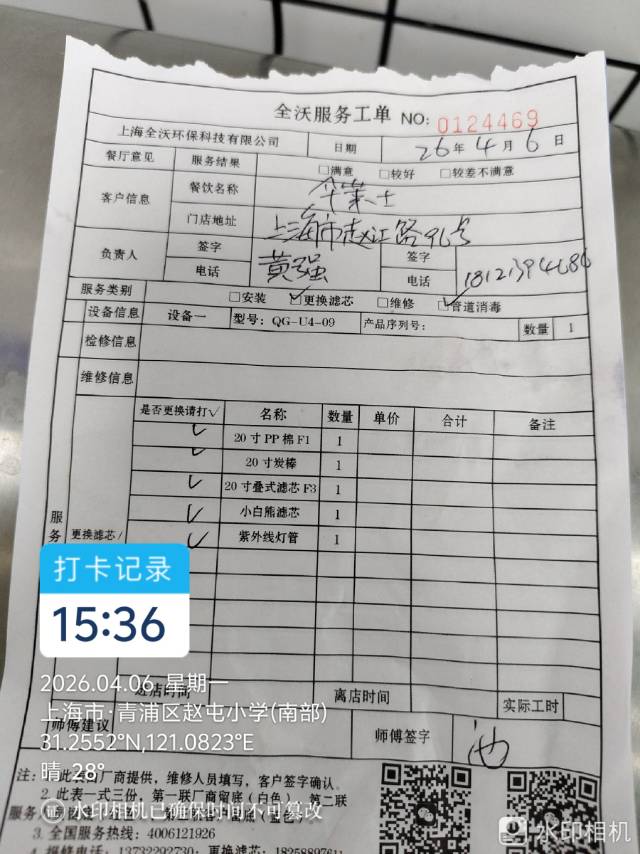 全沃服务工单 NO: 0124469
上海全沃环保科技有限公司 日期 26年4月6日
餐厅意见 服务结果 □满意 □较好 □较差不满意
客户信息 餐饮名称
门店地址 上海市赵江路96号
负责人 签字 黄强 签字
电话 电话
服务类别 □安装 ☑更换滤芯 □维修 ☑管道消毒
设备信息 设备一 型号: QG-U4-09 产品序列号: 数量 1
检修信息
维修信息
是否更换请打√ 名称 数量 单价 合计 备注
✓ 20寸PP棉F1 1
✓ 20寸炭棒 1
✓ 20寸叠式滤芯F3 1
✓ 小白熊滤芯 1
✓ 紫外线灯管 1
服务
更换滤芯/
打卡记录
15:36
2026.04.06 星期一
进店时间 离店时间 实际工时
上海市·青浦区赵屯小学(南部)
师傅建议 师傅签字
31.2552°N,121.0823°E
晴 28°
注: 厂商提供，维修人员填写，客户签字确认。
2. 此表一式三份，第一联厂商留底（白色） 第二联
水印相机已确保时间不可篡改
3. 全国服务热线: 4006121926
4. 维修电话: 13732292730; 更换滤芯: 1825889761
水印相机